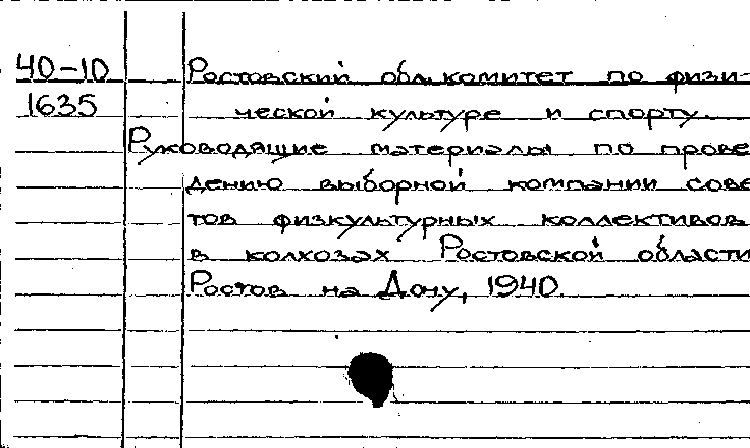 40-10 Ростовский обл.комитет по физи-
1635 ческой культуре и спорту.
Руководящие материалы по прове
дению выборной компании сове
тов физкультурных коллективов
в колхозах Ростовской области
Ростов на Дону, 1940.